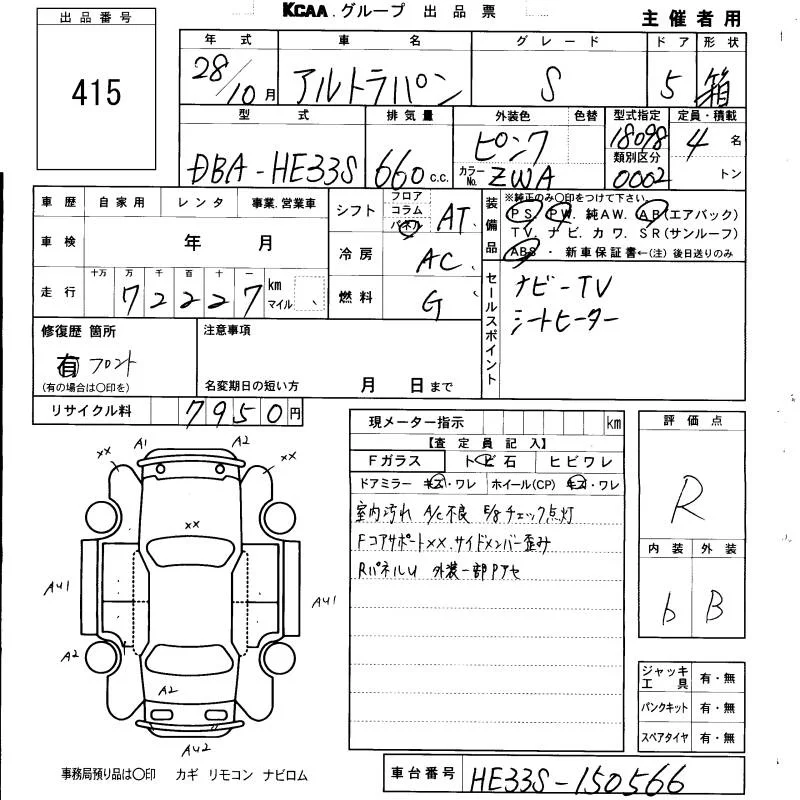 KCAA.グループ 出品票
主催者用
出品番号
415
年式 車名 グレード ドア 形状
28/10月 アルトラパン S 5 箱
型式 排気量 外装色 色替 型式指定 定員・積載
DBA-HE33S 660 c.c. ピンク 18098 4 名
カラーNo. ZWA 類別区分 0002 トン
車歴 自家用 レンタ 事業.営業車
車検 年 月
走行 十万 万 千 百 十 一 km マイル
72227
シフト フロア コラム パネル AT
冷房 AC
燃料 G
装備品 ※純正のみ○印をつけて下さい。
PS. PW. 純AW. AB(エアバック)
TV. ナビ. カワ. SR(サンルーフ)
ABS・新車保証書←(注)後日送りのみ
セールスポイント
ナビーTV
シートヒーター
修復歴 箇所
有 フロント
(有の場合は○印を)
注意事項
名変期日の短い方 月 日まで
リサイクル料 7950円
現メーター指示 km
【査定員記入】
Fガラス トビ石 ヒビワレ
ドアミラー キズ・ワレ ホイール(CP) キズ・ワレ
室内汚れ A/C不良 E/gチェック点灯
Fコアサポートxx.サイドメンバー歪み
RパネルU 外装一部Pアセ
評価点
R
内装 外装
b B
ジャッキ工具 有・無
パンクキット 有・無
スペアタイヤ 有・無
xx A1 A2 xx
F
xx
AU1
AU1
A2
A2
AU2
事務局預り品は○印 カギ リモコン ナビロム
車台番号 HE33S-150566